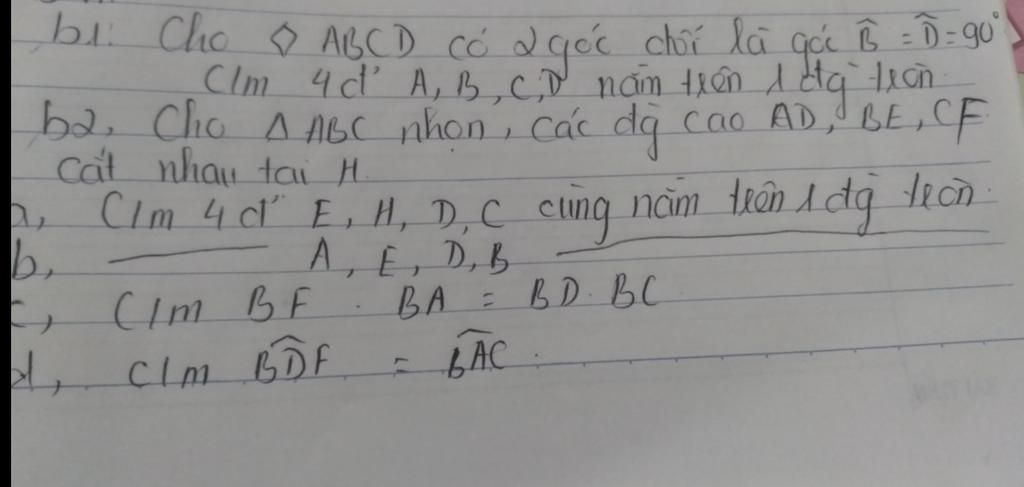 b1: Cho ◊ ABCD có 2 góc đối là góc B̂ = D̂ = 90°
C/m 4 đ' A, B, C, D nằm trên 1 đtg tròn.
b2, Cho Δ ABC nhọn, các đg cao AD, BE, CF
cắt nhau tại H.
a, C/m 4 đ' E, H, D, C cùng nằm trên 1 đtg tròn.
b, A, E, D, B
c, C/m BF . BA = BD . BC
d, C/m BD̂F = BÂC.